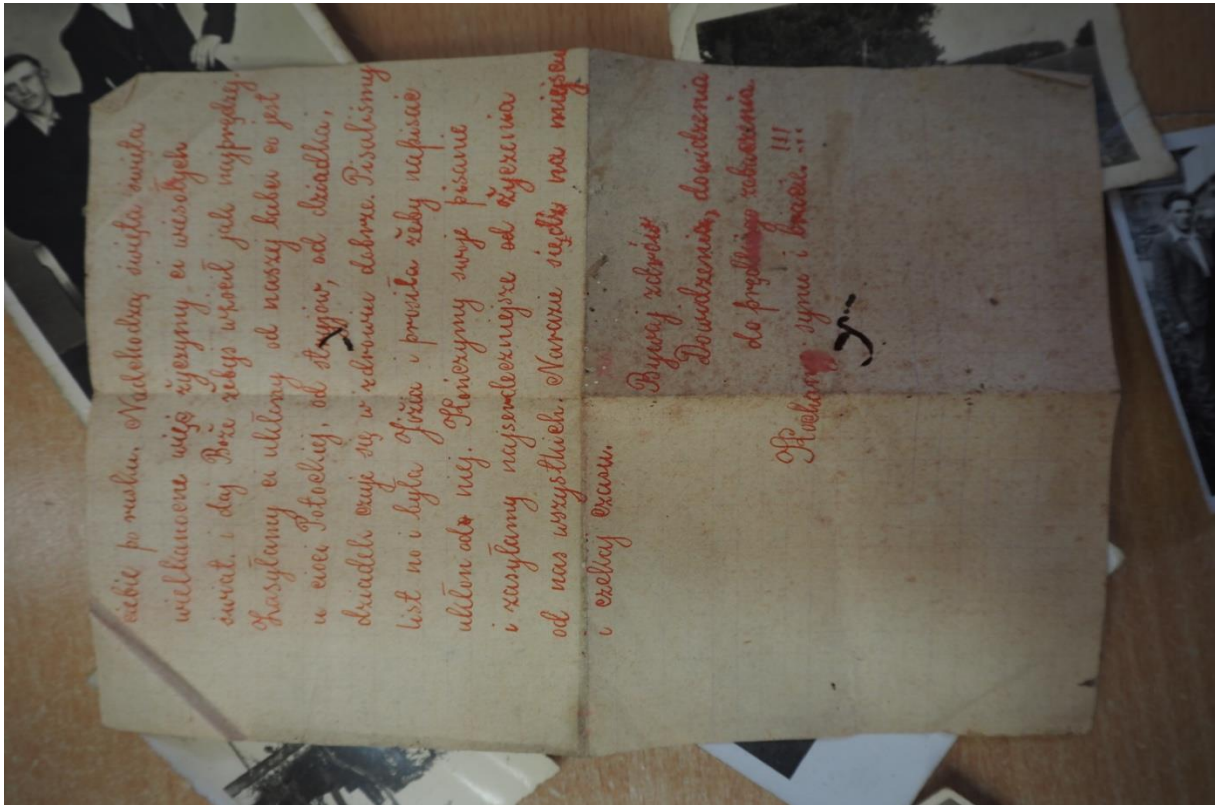 ciebie po rusku. Nadchodzą święta święta
wielkanocne więc życzymy ci wiesołych
świat. i daj Boże żebyś wrócił jak najprędzej
Zasyłamy ci ukłony od naszej babci co jest
u cioci Potockiej, od stryjów, od dziadka,
dziadek czuje się w zdrowiu dobrze. Pisaliśmy
list no i była Józia i prosiła żeby napisać
ukłon od niej. Kończymy swoje pisanie
i zasyłamy najserdeczniejsze od życzenia
od nas wszystkich. Narazie siędź na miejscu
i czekaj czasu.
Bywaj zdrów
Dowidzenia, dowidzenia
do prędkiego zobaczenia
Kochany synu i bracie !!!